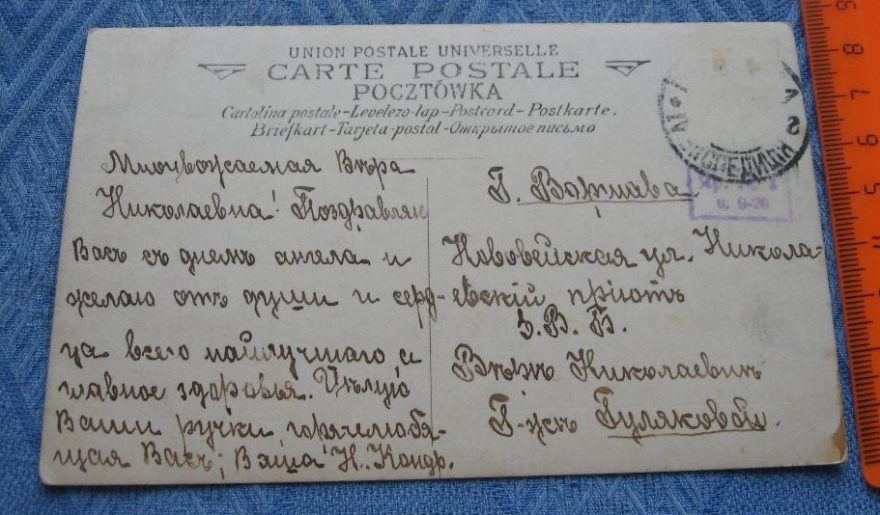 UNION POSTALE UNIVERSELLE
CARTE POSTALE
POCZTÓWKA
Cartolina postale-Levelezo-lap-Postcard-Postkarte.
Briefkart-Tarjeta-postal-Открытое письмо
Многоуважаемая Вѣра
Николаевна! Поздравляю
Васъ съ днемъ ангела и
желаю отъ души и серд-
ца всего наилучшаго а
главное здоровья. Цѣлую
Ваши ручки горячелюбя-
щая Васъ; Ваша Н. Кондр.
Г. Варшава
Нововейская ул. Никола-
евскій пріютъ
З. В. Б.
Вѣрѣ Николаевнѣ
Г-жѣ Гуляковой.
ЭКСПЕДИЦІИ
ч. 9-20
9
8
7
6
5
4
3